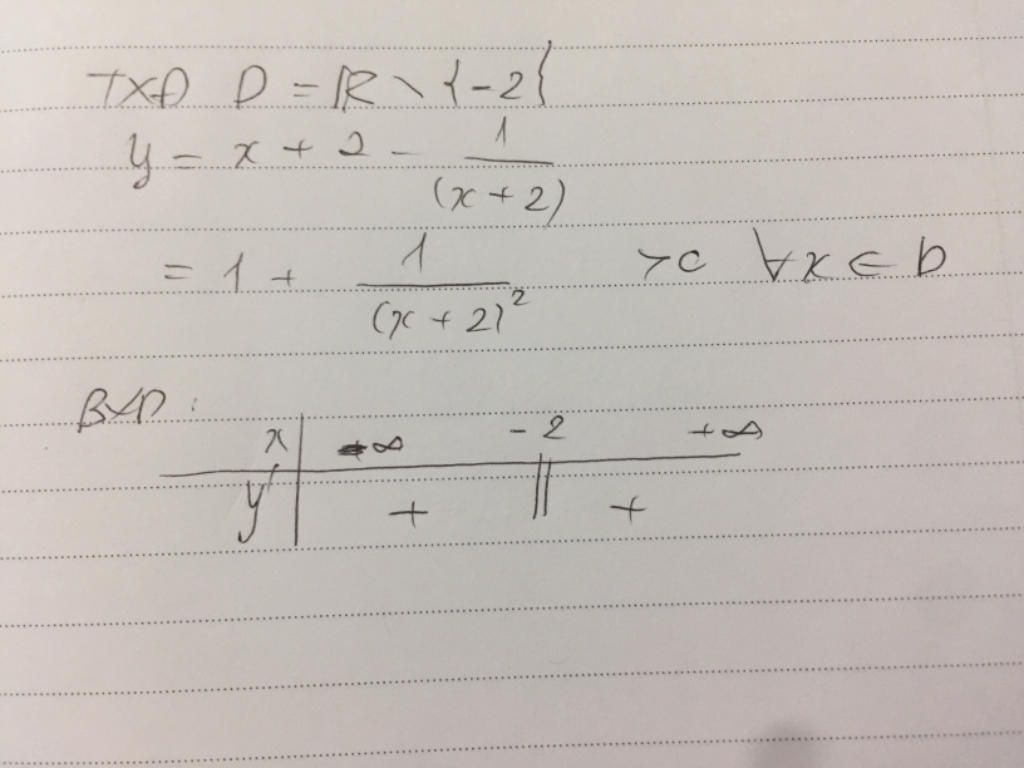 TXĐ D = ℝ \ {-2}
y = x + 2 - 1/(x + 2)
= 1 + 1/(x + 2)² >0 ∀x ∈ D
BXD :
x -∞ -2 +∞
y' + || +